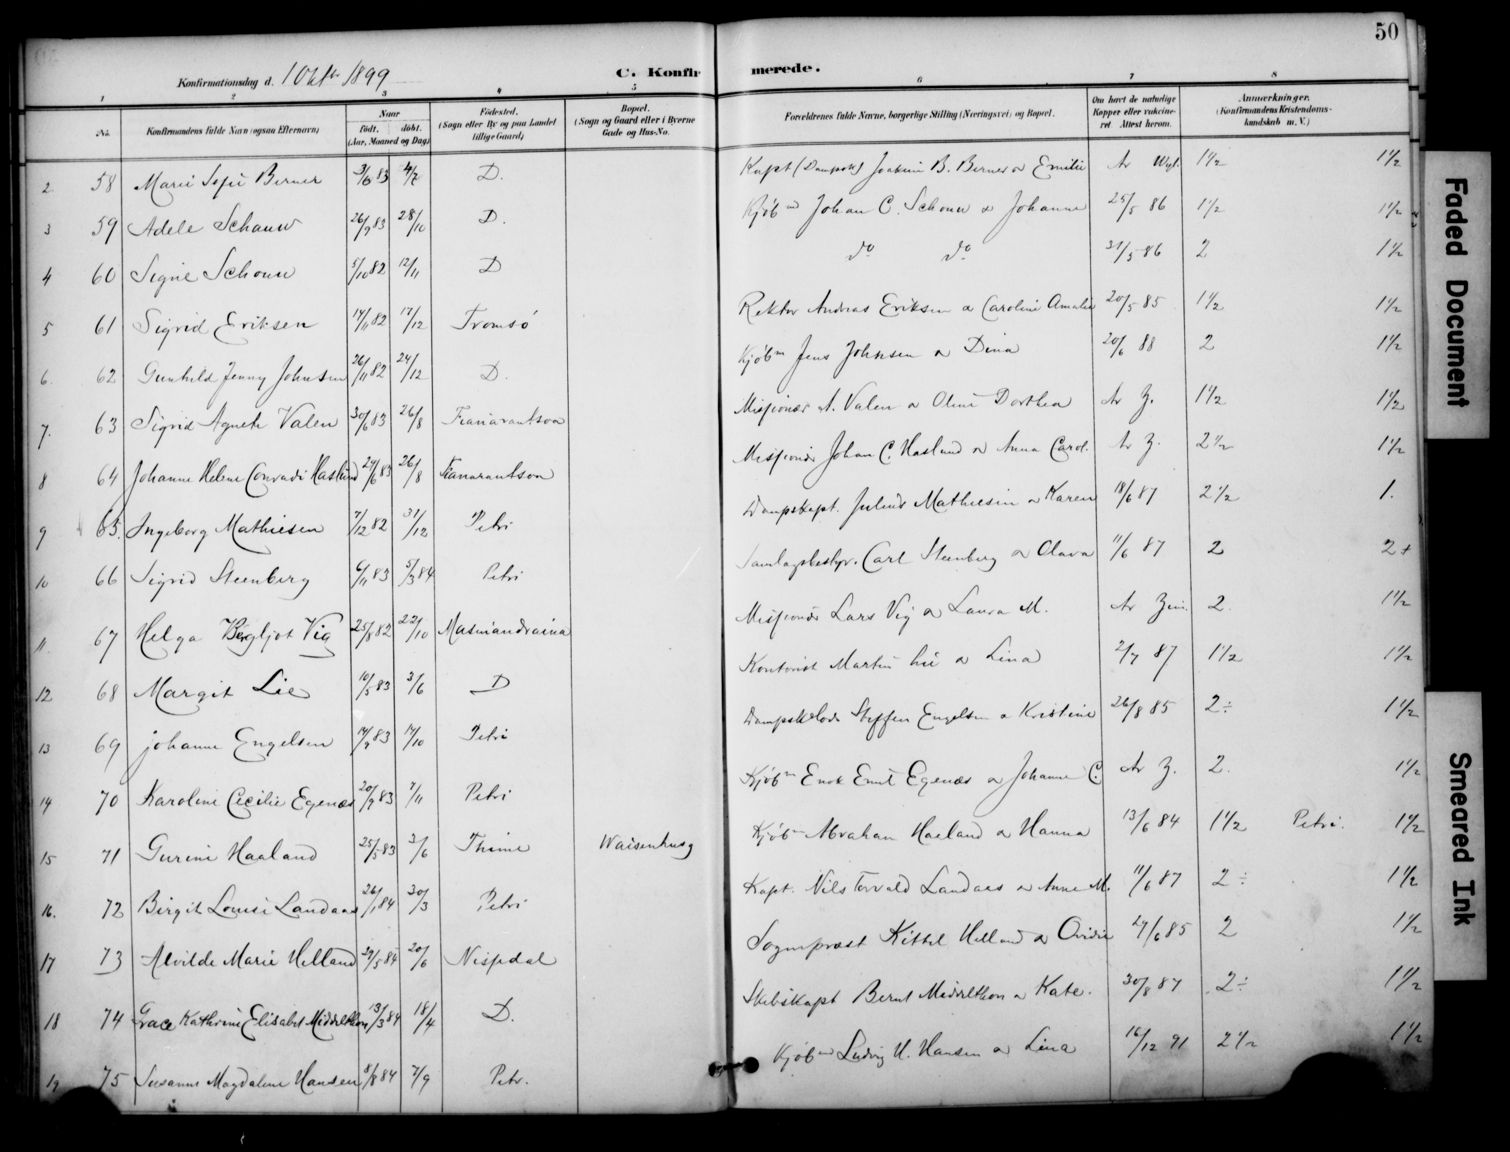 50
Konfirmationsdag d. 1 Okt. 1899 C. Konfirmerede.
1 2 3 4 5 6 7 8
No. Konfirmandens fulde Navn (ogsaa Efternavn) Naar født. døbt. (Aar, Maaned og Dag) Fødested. (Sogn eller By og paa Landet tillige Gaard) Bopæl. (Sogn og Gaard eller i Byerne Gade og Hus-No. Forældrenes fulde Navne, borgerlige Stilling (Næringsvei) og Bopæl. Om havt de naturlige Kopper eller vaccineret Attest herom. Anmærkninger. (Konfirmandens Kristendomskundskab m. V.)
2 58 Marie Sofie Berner 3/6 83 4/7 D. Kapt (Dampsk) Joakim B. Berner & Emilie Ar 1½ 1½
3 59 Adele Schouw 26/9 83 28/10 D. Kjøbm Johan C. Schouw & Johanne 25/5 86 1½ 1½
4 60 Signe Schouw 5/10 82 12/11 D do do 31/5 86 2 1½
5 61 Sigrid Eriksen 14/11 82 17/12 Tromsø Rektor Andreas Eriksen & Caroline Amalie 20/5 85 1½ 1½
6. 62 Gunhild Jenny Johnsen 26/11 82 24/12 D. Kjøbm Jens Johnsen & Dina 20/6 88 2 1½
7. 63 Sigrid Agnete Valen 30/6 83 26/8 Fianarantsoa Misjonær A. Valen & Oline Dorthea Ar Z. 1½ 1½
8 64 Johanne Helene Conradi Haslund 27/6 83 26/8 Fianarantsoa Misjonær Johan C. Haslund & Anna Carol. Ar Z. 2½ 1½
9 65. Ingeborg Mathiesen 7/12 82 31/12 Petri Dampskapt. Julius Mathiesen & Karen 18/6 87 2½ 1.
10 66 Sigrid Steenberg 6/11 83 5/3 84 Petri Samlagsbestyr. Carl Steenberg & Olava 11/6 87 2 2+
11 67 Helga Bergljot Vig 25/8 82 22/10 Masinandraina Misjonær Lars Vig & Laura M. Ar Zim. 2. 1½
12 68 Margit Lie 10/5 83 3/6 D Kontorist Martin Lie & Lina 2/7 87 1½ 1½
13 69 Johanne Engelsen 14/9 83 14/10 Petri Dampsk.lods Steffen Engelsen & Kristine 26/8 85 2÷ 1½
14 70 Karoline Cecilie Egenæs 20/9 83 7/11 Petri Kjøbm Enok Emil Egenæs & Johanne C. Ar Z. 2. 1½
15 71 Gurine Haaland 25/5 83 3/6 Thime Waisenhusg Kjøbm Abraham Haaland & Hanna 13/6 84 1½ Petri. 1½
16. 72 Birgit Louise Landaas 26/1 84 30/3 Petri Kapt. Nils Torvald Landaas & Anne M. 11/6 87 2÷ 1½
17 73 Alvilde Marie Helland 29/5 84 20/6 Nissedal Sogneprest Kittel Helland & Ovidie 27/6 85 2 1½
18 74 Grace Kathrine Elisabet Middelthon 13/3 84 18/4 D. Skibskapt Bernt Middelthon & Kate. 30/8 87 2÷ 1½
19 75 Susanne Magdalene Hansen 8/8 84 7/9 Petr. Kjøbm Ludvig H. Hansen & Lina 16/12 91 2½ 1½
Faded Document
Smeared Ink